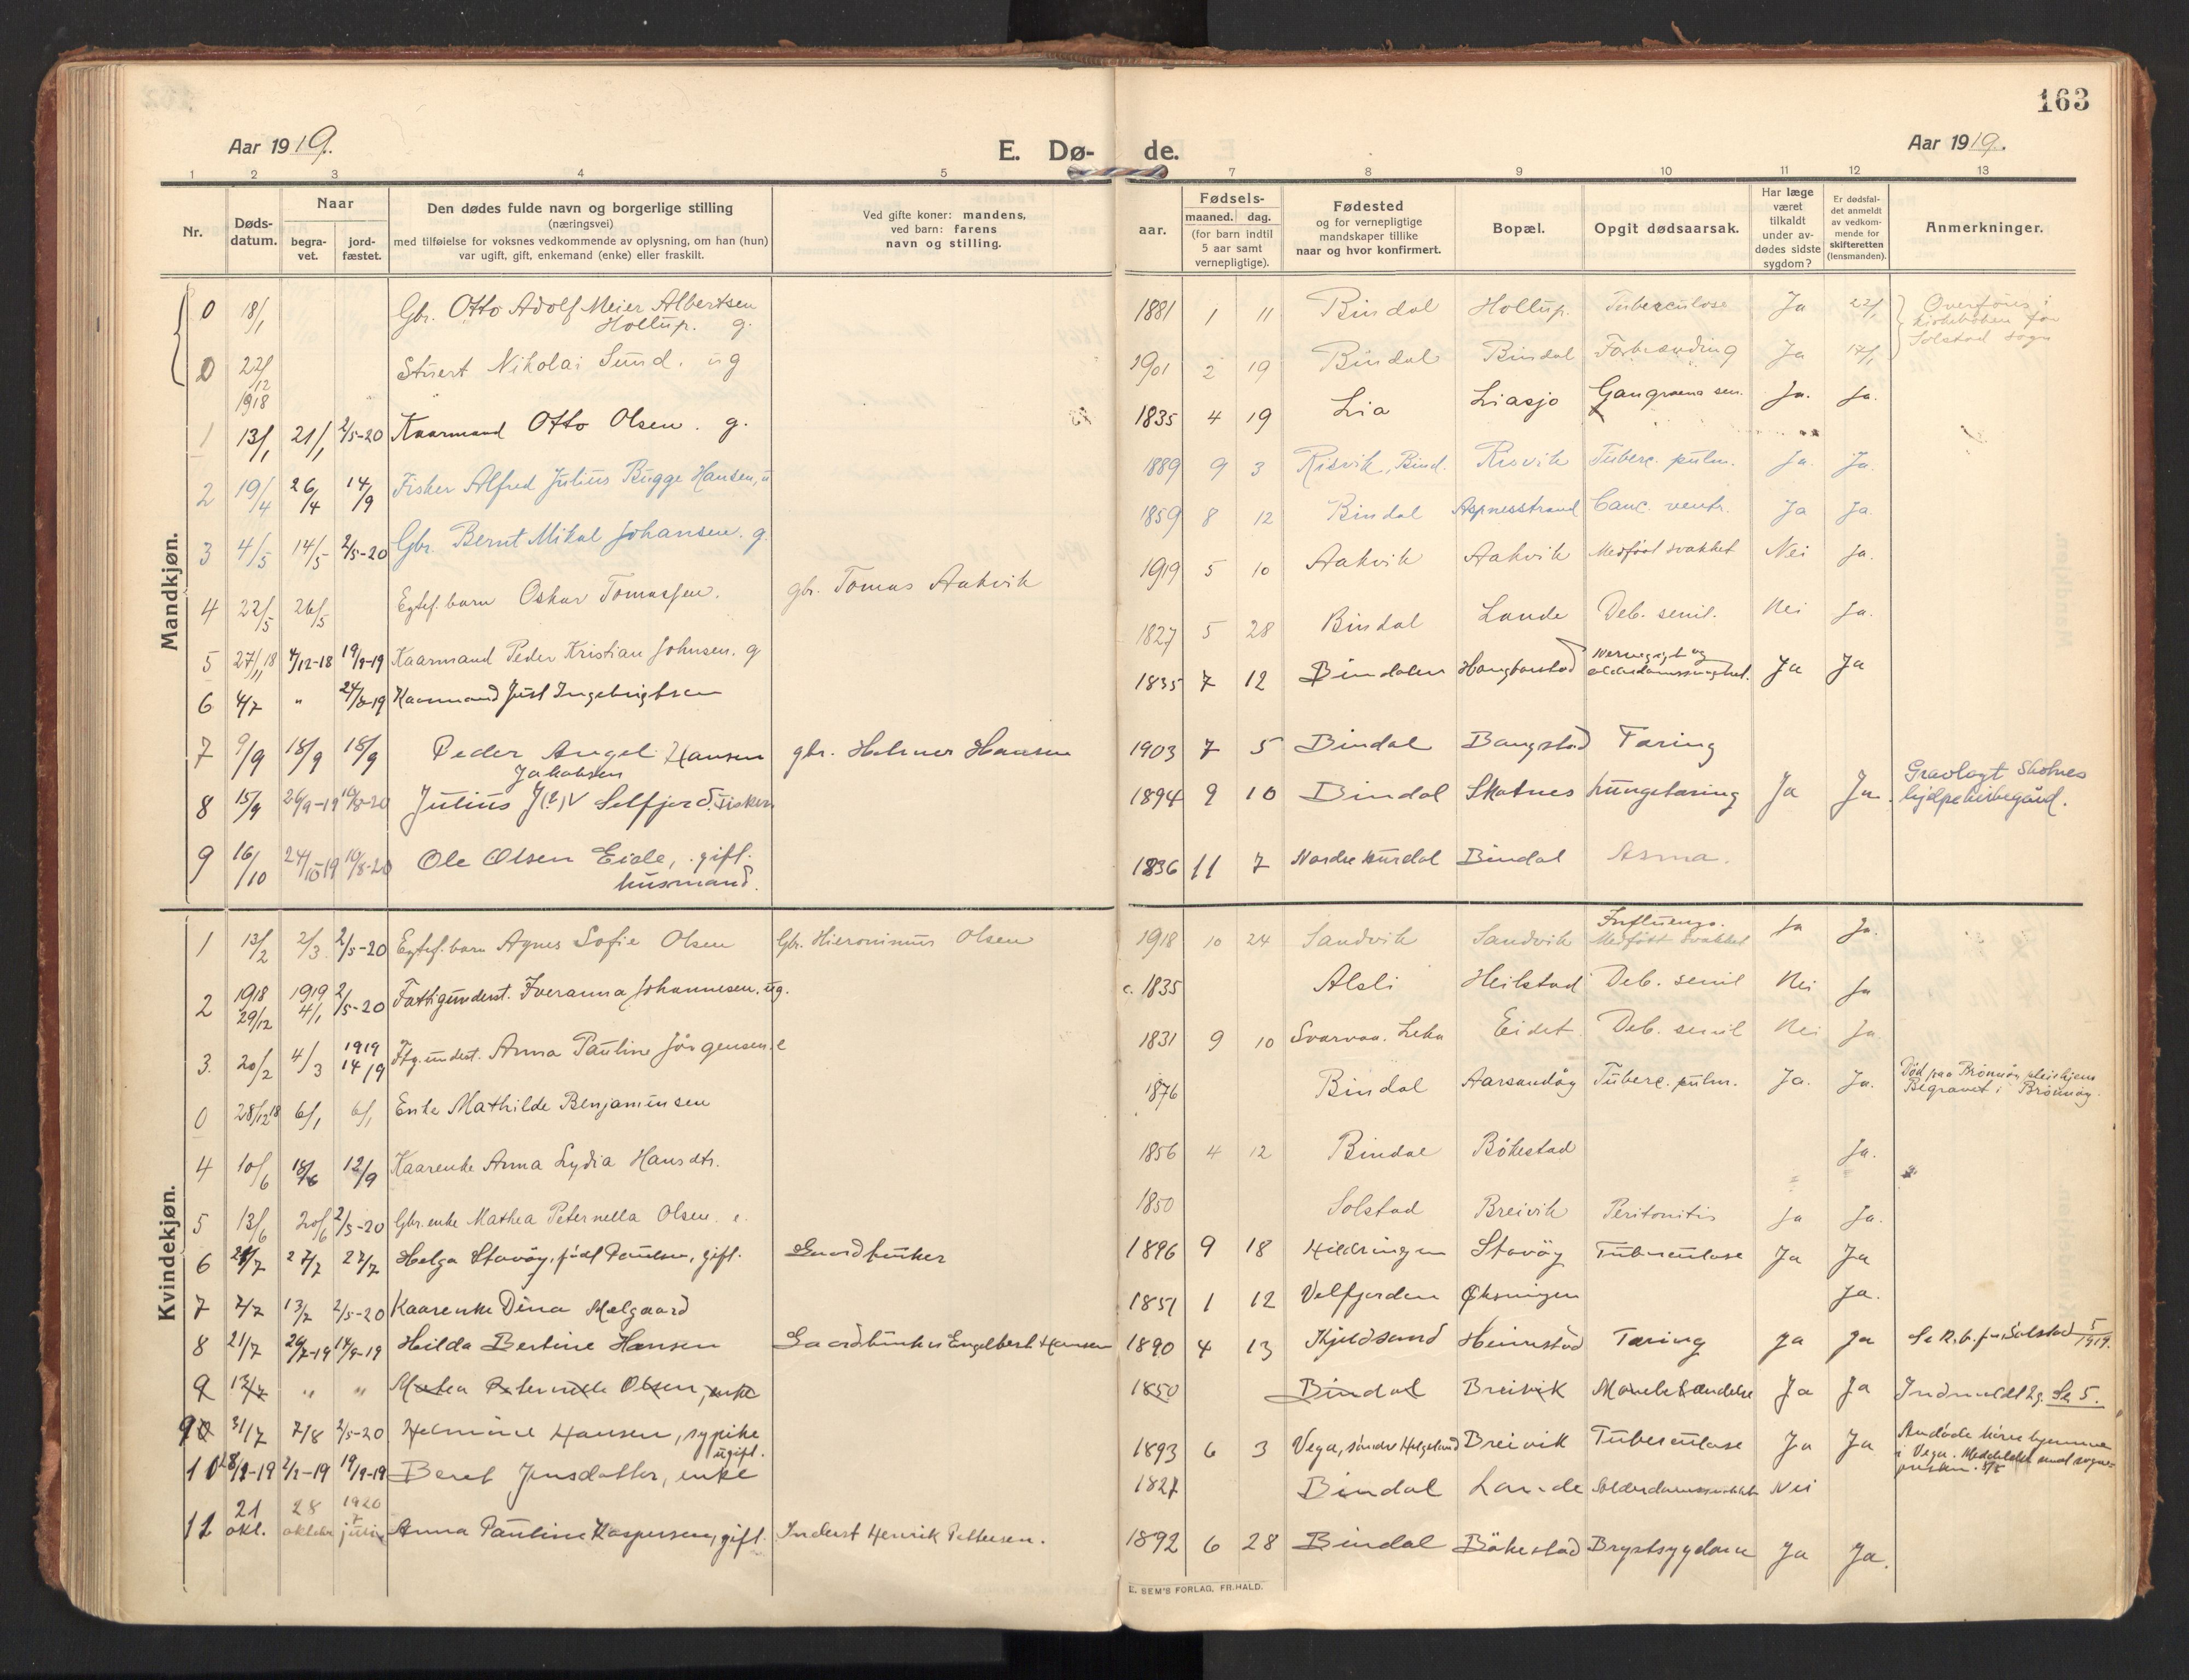 163
Aar 1919.
E. Dø- de.
Aar 1919.
1 2 3 4 5 7 8 9 10 11 12 13
Nr.
Døds-
datum.
Naar
begra-
vet.
jord-
fæstet.
Den dødes fulde navn og borgerlige stilling
(næringsvei)
med tilføielse for voksnes vedkommende av oplysning, om han (hun)
var ugift, gift, enkemand (enke) eller fraskilt.
Ved gifte koner: mandens,
ved barn: farens
navn og stilling.
Fødsels-
aar.
maaned. dag.
(for barn indtil
5 aar samt
vernepligtige).
Fødested
og for vernepligtige
mandskaper tillike
naar og hvor konfirmert.
Bopæl.
Opgit dødsaarsak.
Har læge
været
tilkaldt
under av-
dødes sidste
sygdom?
Er dødsfal-
det anmeldt
av vedkom-
mende for
skifteretten
(lensmanden).
Anmerkninger.
Mandkjøn.
0 18/1 Gbr. Otto Adolf Meier Albertsen
Hollup. g. 1881 1 11 Bindal Hollup. Tuberculose Ja 22/1 Overføres i
kirkeboken for
Solstad sogn
0 22/12 1918 Stuert Nikolai Sund. ug 1901 2 19 Bindal Bindal Forbrænding Ja 17/1
1 13/1 21/1 2/5-20 Kaarmand Otto Olsen. g. 1835 4 19 Lia Liasjø Gangraena sen. Ja. Ja.
2 19/4 26/4 14/9 Fisker Alfred Julius Bugge Hansen, u 1889 9 3 Risvik, Bind. Risvik Tuberc. pulm. Ja. Ja.
3 4/5 14/5 2/5-20 Gbr. Bernt Mikal Johansen. g. 1859 8 12 Bindal Aspnesstrand Canc. ventr. Ja Ja.
4 22/5 26/5 Egtef. barn Oskar Tomassen. gbr. Tomas Aakvik 1919 5 10 Aakvik Aakvik Medfødt svakhet Nei Ja.
5 27/11 18 4/12-18 19/9-19 Kaarmand Peder Kristian Johnsen. g 1827 5 28 Bindal Lande Deb. senil. Nei Ja.
6 4/7 " 24/8-19 Kaarmand Just Ingebrigtsen 1835 7 12 Bindalen Ja Ja
7 9/9 18/9 18/9 Peder Angel Hansen gbr. Helmer Hansen 1903 7 5 Bindal Bangstad Tæring
8 15/9 26/9-19 10/8-20 Jakobsen
Julius J(?)V Selfjord. Fisker 1894 9 10 Bindal Skotnes Lungetæring Ja Ja. Gravlagt Skotnes
hjelpekirkegård.
9 16/10 24/10 19 10/8-20 Ole Olsen Eide, gift.
husmand. 1836 11 7 Bindal Asma.
Kvindekjøn.
1 13/2 2/3 2/5-20 Egtef. barn Agnes Sofie Olsen Gbr. Hieronimus Olsen 1918 10 24 Sandvik Sandvik Influenza.
Medfødt svakhet Ja Ja.
2 1918 29/12 1919 4/1 2/5-20 Fattigunderst. Iveranna Johannesen. ug. c. 1835 Alsli Heilstad Deb. senil Nei Ja
3. 20/2 4/3 1919 14/9 Ftg. underst. Anna Pauline Jörgensen. e 1831 9 10 Svarvaa. Leka Eidet Deb. senil Nei Ja
0 28/12 18 6/1 6/1 Enke Mathilde Benjaminsen 1876 Bindal Aarsandöy Tuberc. pulm. Ja. Ja. Död paa Brönnöy pleiehjem
Begravet i Brönnöy.
4 10/6 18/6 12/9 Kaarenke Anna Lydia Hansdtr. 1856 4 12 Bindal Bökestad Ja.
5 13/6 20/6 2/5-20 Gbr. enke Mathea Peternella Olsen. e. 1850 Solstad Breivik Peritonitis Ja Ja.
6 21/7 27/7 27/7 Helga Stavöy, född Paulsen, gift. Gaardbruker 1896 9 18 Hildringen Stavöy Tuberculose Ja Ja
7 7/7 13/7 2/5-20 Kaarenke Dina Mælgaard 1851 1 12 Velfjorden Øksningen Ja.
8 21/7 29/7-19 14/9-19 Hilda Bertine Hansen Gaardbruker Engelbert Hansen 1890 4 13 Kjeldsund Heimstad Tæring Ja Ja Se K.b. for Solstad 5/1919.
9 13/7 " " Matea Peternelle Olsen, enke 1850 Bindal Breivik Ja Ja Indmeldt 2 g. Se 5.
90 31/7 7/8 2/5-20 Helmine Hansen, sypike
ugift. 1893 6 3 Vega, söndre Helgeland Breivik Tuberculose Ja Ja
10 28/2-19 2/2-19 19/9-19 Beret Jensdatter, enke 1827 Bindal Lande Nei
11 21 okt. 28 oktober 1920 7 juli Anna Pauline Kaspersen, gift. Inderst Henrik Pettersen. 1892 6 28 Bindal Bökestad Brystsygdom Ja Ja.
E. SEM'S FORLAG, FR.HALD.